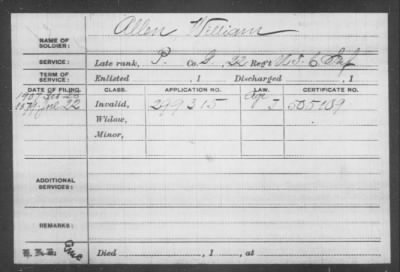 NAME OF SOLDIER: Allen William
SERVICE: Late rank, P. Co. G, 22 Reg't U.S.C. Inf
TERM OF SERVICE: Enlisted , 1 Discharged , 1
DATE OF FILING. CLASS. APPLICATION NO. LAW. CERTIFICATE NO.
1879 Jul 22 Invalid, 299315 585189
Widow,
Minor,
ADDITIONAL SERVICES:
REMARKS:
Died , 1 , at